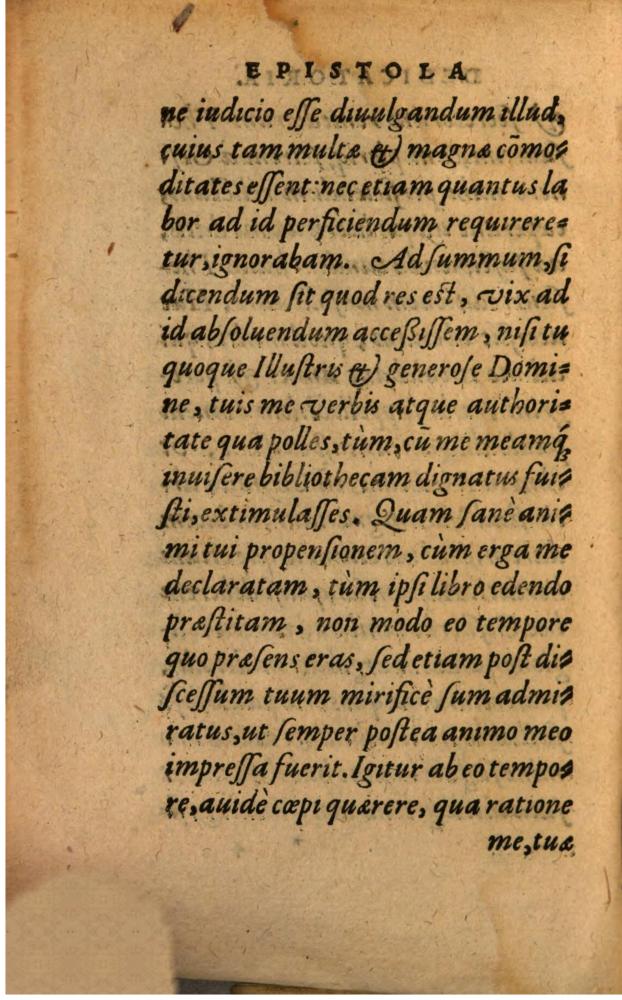 EPISTOLA
ne iudicio eſſe diuulgandum illud,
cuius tam multæ & magnæ cõmo-
ditates eſſent: nec etiam quantus la
bor ad id perficiendum requirere-
tur, ignorabam. Ad ſummum, ſi
dicendum ſit quod res eſt, vix ad
id abſoluendum acceßiſſem, niſi tu
quoque Illuſtris & generoſe Domi-
ne, tuis me verbis atque authori-
tate qua polles, tùm, cũ me meamq́;
inuiſere bibliothecam dignatus fui-
ſti, extimulaſſes. Quam ſanè ani-
mi tui propenſionem, cùm erga me
declaratam, tùm ipſi libro edendo
præſtitam, non modo eo tempore
quo præſens eras, ſed etiam poſt di-
ſceſſum tuum mirificè ſum admi-
ratus, ut ſemper poſtea animo meo
impreſſa fuerit. Igitur ab eo tempo-
re, auidè cœpi quærere, qua ratione
me, tuæ